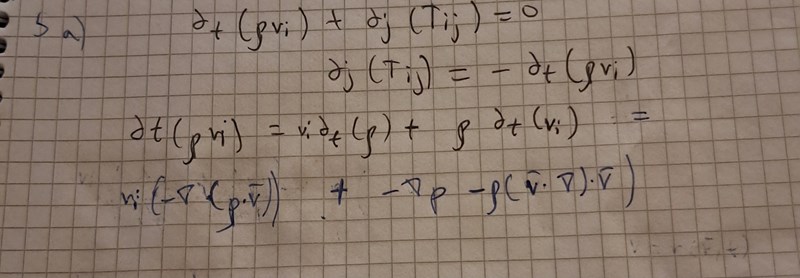 5 a) ∂t (ρvi) + ∂j (Tij) = 0
∂j (Tij) = - ∂t (ρvi)
∂t (ρvi) = vi ∂t (ρ) + ρ ∂t (vi) =
vi (-∇ (ρ·v̄)) + -∇p - ρ(v̄·∇)·v̄)